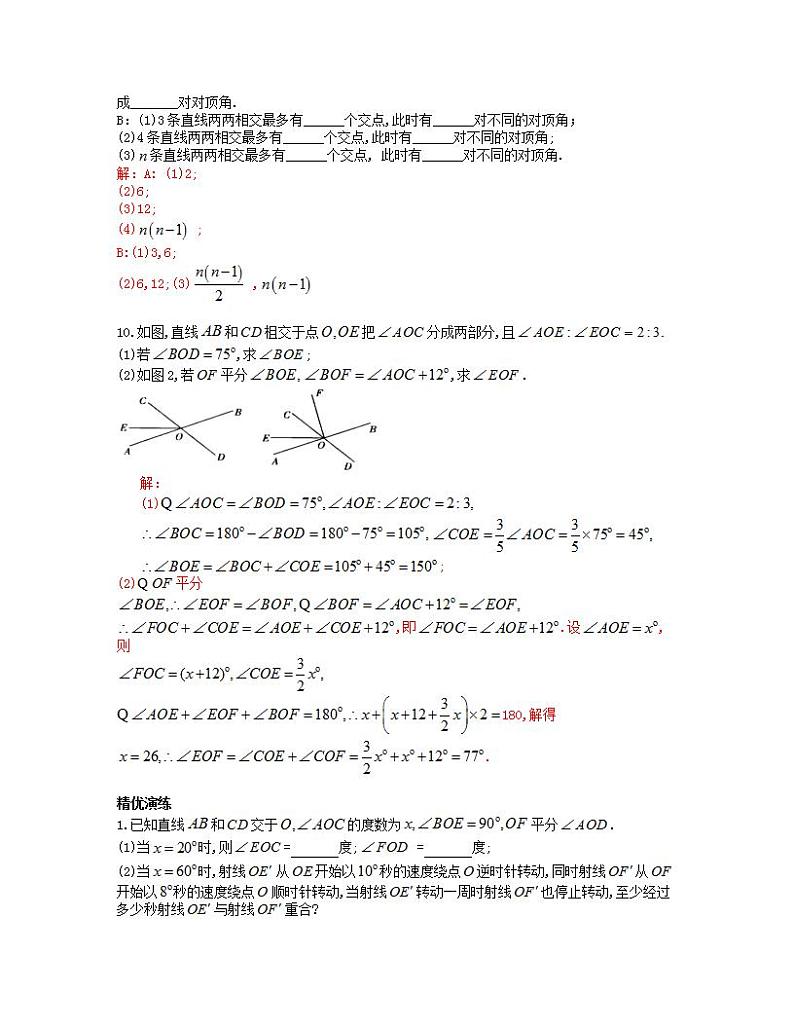 成______对对顶角.
B:(1)3条直线两两相交最多有______个交点,此时有______对不同的对顶角;
(2)4条直线两两相交最多有______个交点,此时有______对不同的对顶角;
(3)n条直线两两相交最多有______个交点, 此时有______对不同的对顶角.
解:A: (1)2;
(2)6;
(3)12;
(4) n(n−1) ;
B:(1)3,6;
(2)6,12;(3) n(n−1)/2 ,n(n−1)
10.如图,直线AB和CD相交于点O,OE把∠AOC分成两部分,且∠AOE:∠EOC=2:3.
(1)若∠BOD=75°,求∠BOE;
(2)如图2,若OF平分∠BOE,∠BOF=∠AOC+12°,求∠EOF.
C B E O A D
F C B E O A D
解:
(1)Q∠AOC=∠BOD=75°,∠AOE:∠EOC=2:3,
∴∠BOC=180°−∠BOD=180°−75°=105°,∠COE=3/5∠AOC=3/5×75°=45°,
∴∠BOE=∠BOC+∠COE=105°+45°=150°;
(2)Q OF平分
∠BOE,∴∠EOF=∠BOF,Q∠BOF=∠AOC+12°=∠EOF,
∴∠FOC+∠COE=∠AOE+∠COE+12°,即∠FOC=∠AOE+12°.设∠AOE=x°,
则
∠FOC=(x+12)°,∠COE=3/2x°,
Q∠AOE+∠EOF+∠BOF=180°,∴x+(x+12+3/2x)×2=180,解得
x=26,∴∠EOF=∠COE+∠COF=3/2x°+x°+12°=77°.
精优演练
1.已知直线AB和CD交于O,∠AOC的度数为x,∠BOE=90°,OF平分∠AOD.
(1)当x=20°时,则∠EOC=______度;∠FOD =______度;
(2)当x=60°时,射线OE′从OE开始以10°秒的速度绕点O逆时针转动,同时射线OF′从OF
开始以8°秒的速度绕点O顺时针转动,当射线OE′转动一周时射线OF′也停止转动,至少经过
多少秒射线OE′与射线OF′重合?